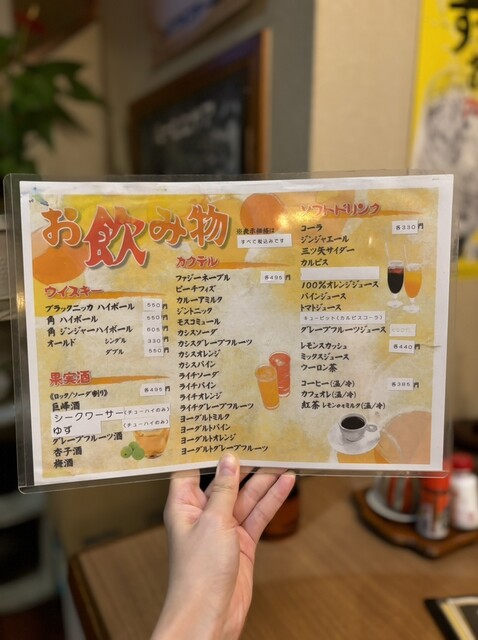 お飲み物
※表示価格は
すべて税込みです
ウイスキー
ブラックニッカ ハイボール 550
角 ハイボール 550
角 ジンジャーハイボール 605
オールド シングル 330
ダブル 550
果実酒
(ロック/ソーダ割り) 各495円
巨峰酒
シークワーサー(チューハイのみ)
ゆず (チューハイのみ)
グレープフルーツ酒
杏子酒
梅酒
カクテル
ファジーネーブル 各495円
ピーチフィズ
カルーアミルク
ジントニック
モスコミュール
カシスソーダ
カシスグレープフルーツ
カシスオレンジ
カシスパイン
ライチソーダ
ライチパイン
ライチオレンジ
ライチグレープフルーツ
ヨーグルトミルク
ヨーグルトパイン
ヨーグルトオレンジ
ヨーグルトグレープフルーツ
ソフトドリンク
コーラ 各330円
ジンジャエール
三ツ矢サイダー
カルピス
100%オレンジジュース
パインジュース
トマトジュース
キューピット(カルピスコーラ)
グレープフルーツジュース
レモンスカッシュ 各440円
ミックスジュース
ウーロン茶
コーヒー(温/冷) 各385円
カフェオレ(温/冷)
紅茶 レモンorミルク(温/冷)